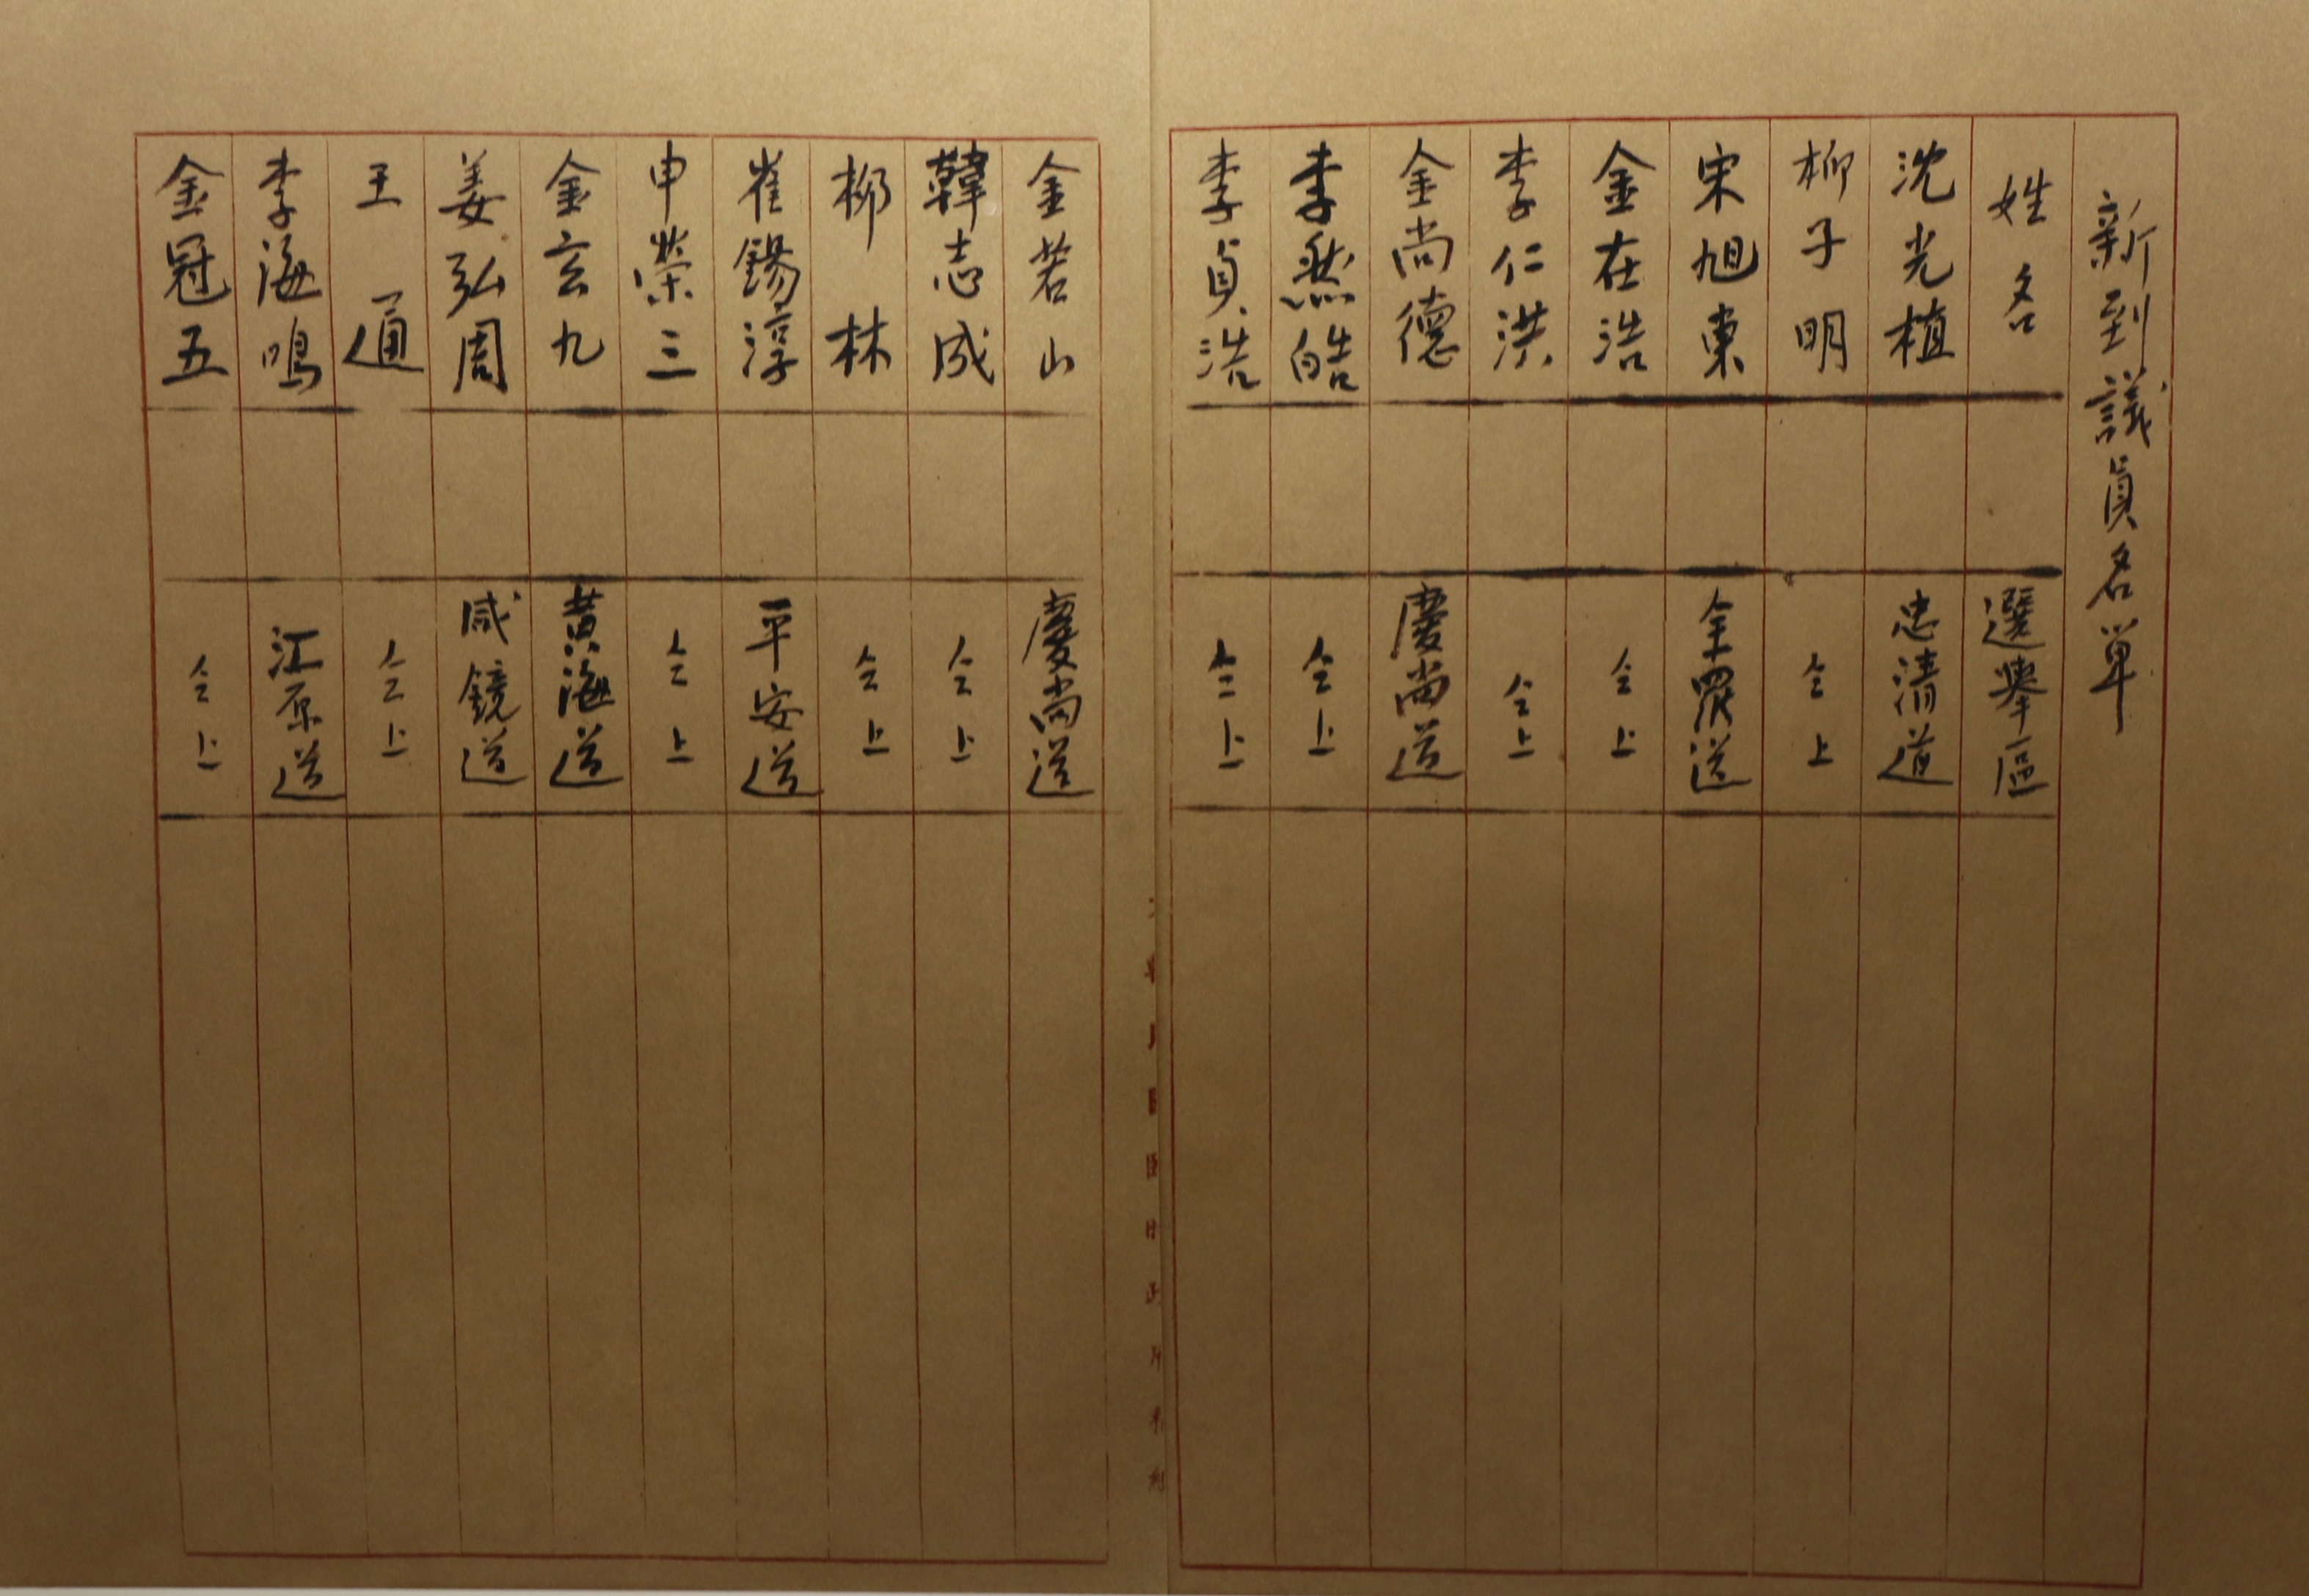 新到議員名單
姓名 選舉區
沈光植 忠清道
柳子明 仝上
宋旭東 全羅道
金在浩 仝上
李仁洪 仝上
金尚德 慶尚道
李然皓 仝上
李貞浩 仝上
金若山 慶尚道
韓志成 仝上
柳林 仝上
崔錫淳 平安道
申榮三 仝上
金玄九 黃海道
姜弘周 咸鏡道
王通 仝上
李海鳴 江原道
金冠五 仝上